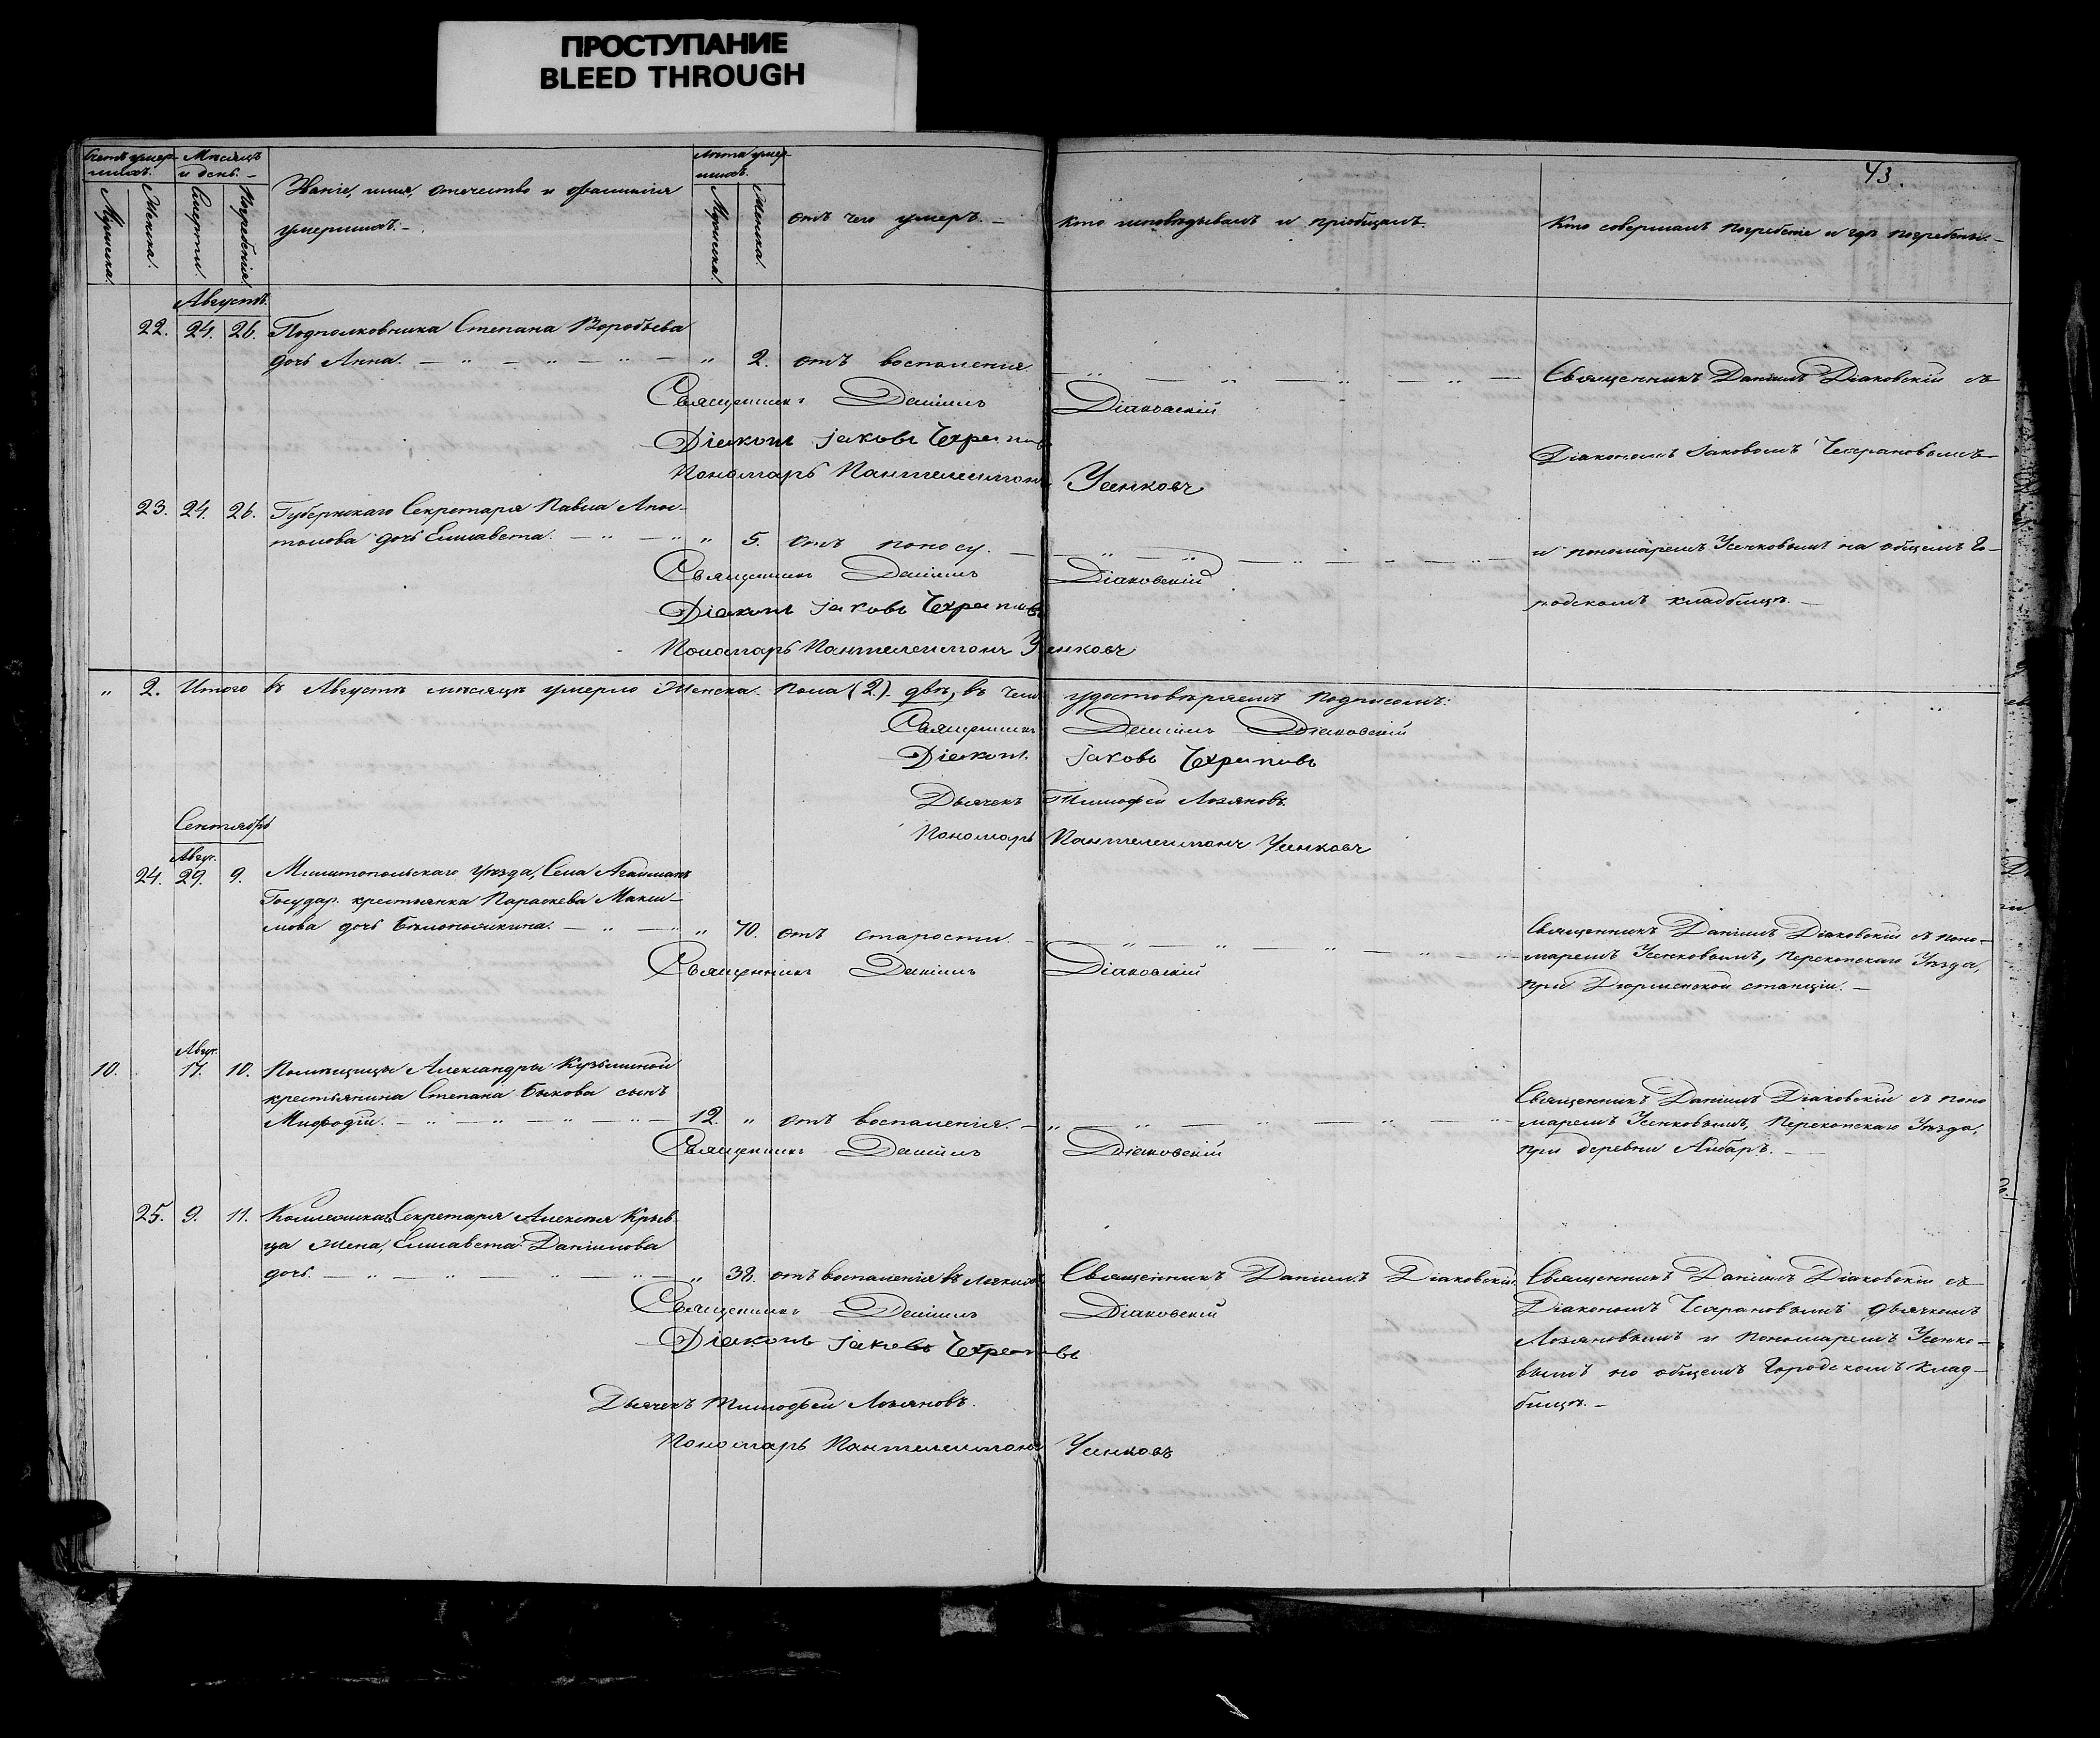 ПРОСТУПАНИЕ
BLEED THROUGH
43.
Счетъ умер-
шихъ.
Мѣсяцъ
и день.
Званіе, имя, отечество и фамилія
умершихъ.
Лѣта умер-
шихъ.
отъ чего умеръ.
Кто исповѣдывалъ и пріобщалъ.
Кто совершалъ погребеніе и гдѣ погребены.
Мужеска.
Женска.
Смерти.
Погребенія.
Мужеска.
Женска
Августъ.
22. 24. 26. Подполковника Степана Воробьева
дочь Анна. — „ — „ — „ — „ 2. отъ воспаленія. — „ — „ — „ — „ — Священникъ Даніилъ Діаковскій съ
Священникъ Даніилъ Діаковскій
Діаконъ Іаковъ Чехрановъ
Діакономъ Іаковомъ Чехрановымъ
Пономарь Пантелеимонъ Усенковъ
23. 24. 26. Губернскаго Секретаря Павла Апос-
толова дочь Елисавета. — „ — „ 5. отъ поносу. — „ — „ — „ — „ — и пономаремъ Усенковымъ на общемъ Го-
Священникъ Даніилъ Діаковскій
родскомъ кладбищѣ. —
Діаконъ Іаковъ Чехрановъ
Пономарь Пантелеимонъ Усенковъ
„ 2. Итого въ Августѣ мѣсяцѣ умерло женска. пола (2). двѣ, въ чемъ удостовѣряемъ подписомъ:
Священникъ Даніилъ Діаковскій
Діаконъ. Іаковъ Чехрановъ
Дьячекъ Тимофей Лозяновъ.
Пономарь Пантелеимонъ Усенковъ
Сентябрь
Авгус.
24. 29. 9. Милитопольскаго уѣзда, Села Агайманъ
Государ. крестьянка Параскева Макси-
мова дочь — „ — „ 70. отъ старости. — „ — „ — „ — „ — Священникъ Даніилъ Діаковскій съ поно-
Священникъ Даніилъ Діаковскій
маремъ Усенковымъ, Перекопскаго Уѣзда,
при Дюрменской станціи. —
Авгус.
10. 17. 10. Помѣщицы Александры Кузьминой
крестьянина Степана Быкова сынъ
Мифодій. — „ — „ — „ — 12. „ отъ воспаленія. — „ — „ — „ — „ — Священникъ Даніилъ Діаковскій съ поно
Священникъ Даніилъ Діаковскій
маремъ Усенковымъ, Перекопскаго Уѣзда,
при деревни Айбаръ. —
25. 9. 11. Коллежскаго Секретаря Алексѣя Крыв-
ца жена, Елисавета Даніилова
дочь. — „ — „ — „ — „ 38. отъ воспаленія въ легкихъ Священникъ Даніилъ Діаковскій. Священникъ Даніилъ Діаковскій съ
Священникъ Даніилъ Діаковскій
Діакономъ Чехрановымъ дьячкомъ
Діаконъ Іаковъ Чехрановъ
Лозяновымъ и пономаремъ Усенко-
вымъ на общемъ Городскомъ клад-
Дьячекъ Тимофей Лозяновъ.
бищѣ. —
Пономарь Пантелеимонъ Усенковъ